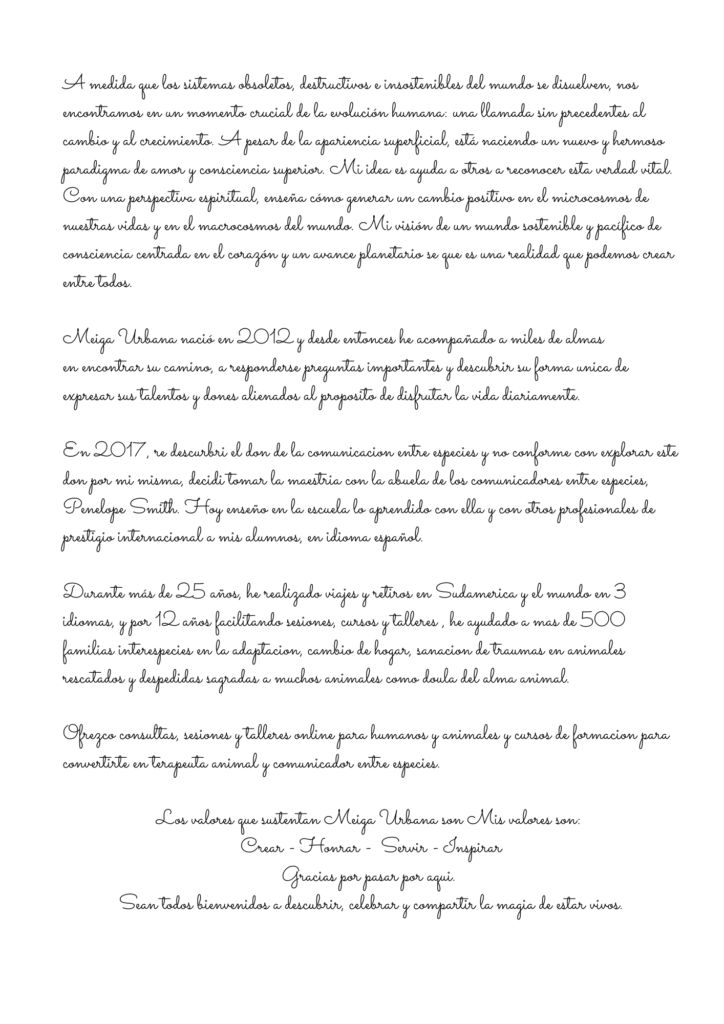 A medida que los sistemas obsoletos, destructivos e insostenibles del mundo se disuelven, nos
encontramos en un momento crucial de la evolución humana: una llamada sin precedentes al
cambio y al crecimiento. A pesar de la apariencia superficial, está naciendo un nuevo y hermoso
paradigma de amor y consciencia superior. Mi idea es ayuda a otros a reconocer esta verdad vital.
Con una perspectiva espiritual, enseña cómo generar un cambio positivo en el microcosmos de
nuestras vidas y en el macrocosmos del mundo. Mi visión de un mundo sostenible y pacífico de
consciencia centrada en el corazón y un avance planetario se que es una realidad que podemos crear
entre todos.
Meiga Urbana nació en 2012 y desde entonces he acompañado a miles de almas
en encontrar su camino, a responderse preguntas importantes y descubrir su forma unica de
expresar sus talentos y dones alienados al proposito de disfrutar la vida diariamente.
En 2017, re descurbri el don de la comunicacion entre especies y no conforme con explorar este
don por mi misma, decidi tomar la maestria con la abuela de los comunicadores entre especies,
Penelope Smith. Hoy enseño en la escuela lo aprendido con ella y con otros profesionales de
prestigio internacional a mis alumnos, en idioma español.
Durante más de 25 años, he realizado viajes y retiros en Sudamerica y el mundo en 3
idiomas, y por 12 años facilitando sesiones, cursos y talleres , he ayudado a mas de 500
familias interespecies en la adaptacion, cambio de hogar, sanacion de traumas en animales
rescatados y despedidas sagradas a muchos animales como doula del alma animal.
Ofrezco consultas, sesiones y talleres online para humanos y animales y cursos de formacion para
convertirte en terapeuta animal y comunicador entre especies.
Los valores que sustentan Meiga Urbana son Mis valores son:
Crear - Honrar - Servir - Inspirar
Gracias por pasar por aqui.
Sean todos bienvenidos a descubrir, celebrar y compartir la magia de estar vivos.